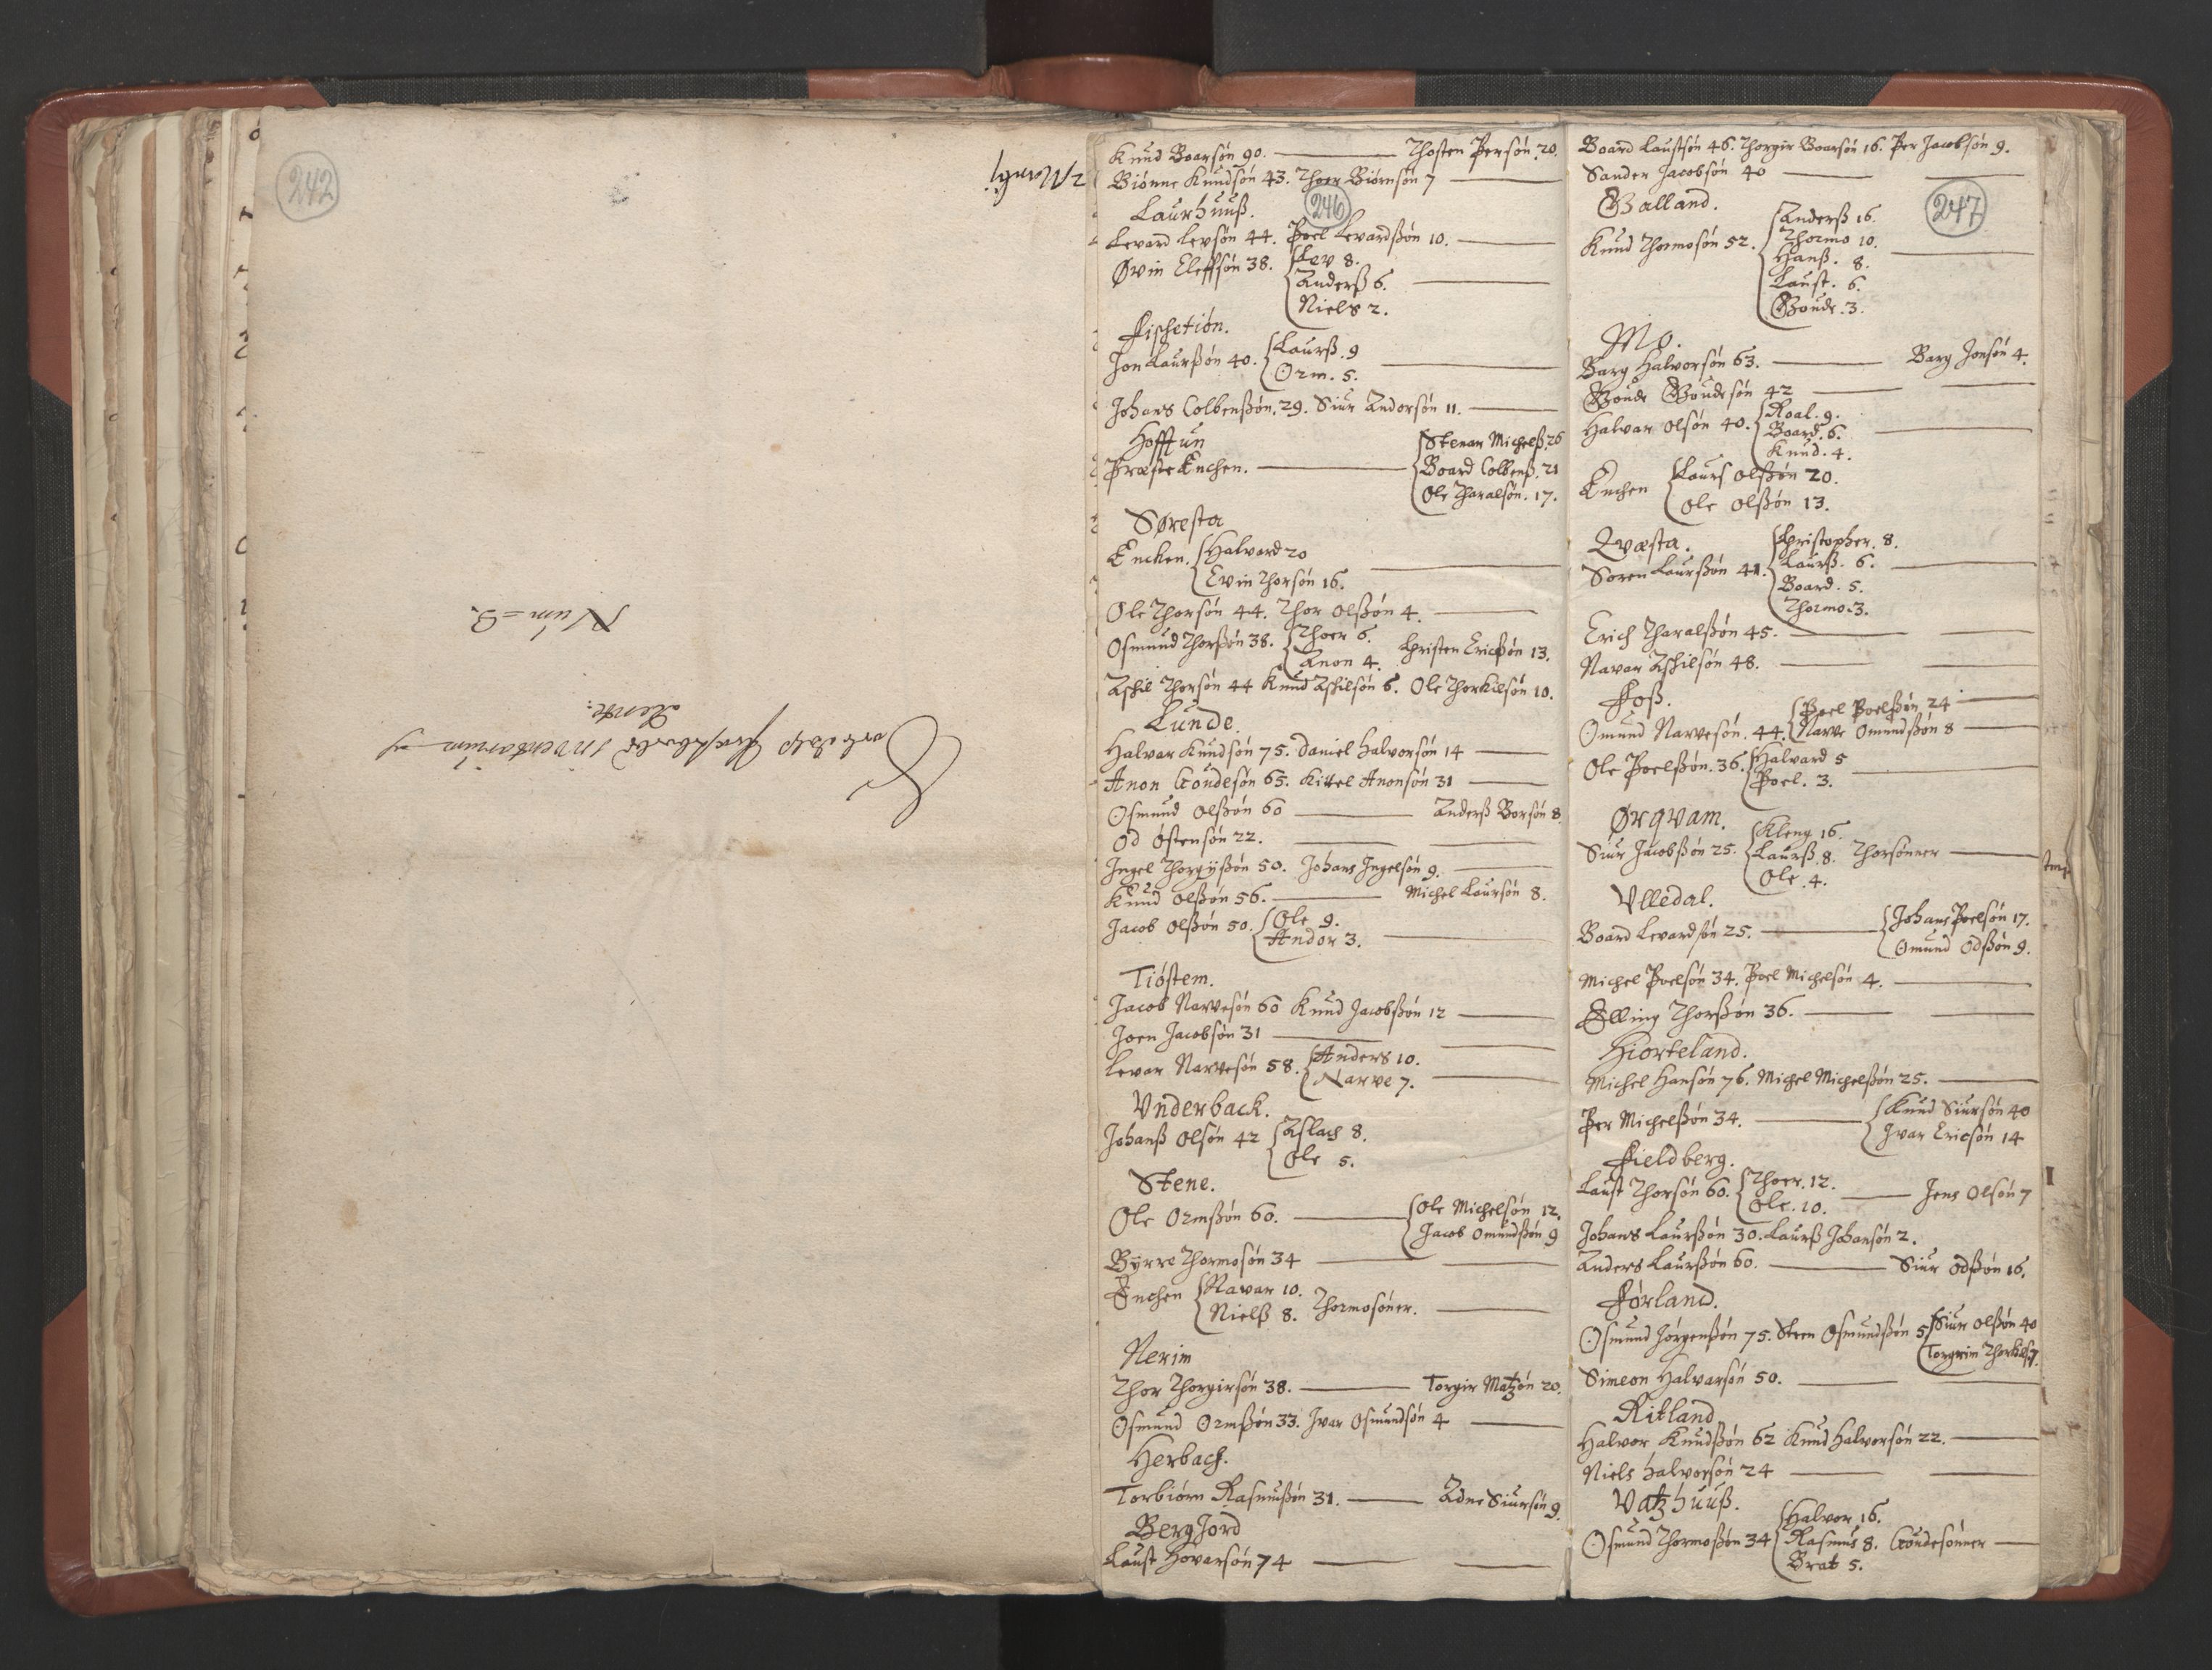 242
Num = 3.
246
Knud Boarsøn 90. Thosten Persøn. 20.
Biönne Knudsøn 43. Thoer Biørnsøn 7
Laurhuuß.
Levard Levsøn 44. Poel Levardßøn 10.
Øvin Eleffsøn 38. Lev 8.
Anderß 6.
Niels 2.
Fischetiøn.
Jon Laurßøn 40. Laurß. 9
Orm. 5.
Johans Colbenßøn. 29. Siur Andorsøn 11.
Hofftun
Præste Enchen. Stenar Michelß. 26
Board Colbenß. 21
Ole Tharalsøn. 17.
Søresta
Encken. Halvard 20
Evin Thorsøn 16.
Ole Thorsøn 44. Thor Olßøn 4.
Osmund Thorßøn 38. Thoer 6. Christen Ericßøn 13.
Anon 4.
Aschil Thorsøn 44 Knud Aschilsøn 6. Ole Thorkilsøn 10.
Lunde.
Halvar Knudsøn 75. Daniel Halvorsøn 14
Anon Goudesøn 65. Kittel Anonsøn 31
Osmund Olßøn 60 Anderß Borsøn 8.
Od Østensøn 22.
Ingel Thorgyßøn 50. Johans Ingelsøn 9.
Knud Olßøn 56. Michel Laursøn 8.
Jacob Olßøn 50. Ole 9.
Andor 3.
Tiøstem.
Jacob Narvesøn 60 Knud Jacobßøn 12
Joen Jacobsøn 31
Levar Narvesøn 58. Anders 10.
Narve 7.
Vnderback.
Johanß Olsøn 42 Aslach 8.
Ole 5.
Stene.
Ole Ormßøn 60. Ole Michelsøn 12.
Jacob Omundßøn 9
Byrre Thormosøn 34
Enchen Navar 10.
Nielß 8. Thormosøner.
Nerim
Thor Thorgirsøn 38. Torgir Matzøn 20.
Osmund Ormßøn 33. Ivar Osmundsøn 4
Herbach.
Torbiørn Rasmußøn 31. Adne Siursøn 9.
BergJord
Laust Hovarsøn 74
247
Board Laustsøn 46. Thorgir Boarsøn 16. Per Jacobsøn 9.
Sander Jacobsøn 40
Galland.
Knud Thormosøn 52. Anderß 16.
Thormo 10.
Hanß. 8.
Laust. 6.
Goude. 3.
Mo.
Barg Halvorsøn 63. Barg Jonsøn 4.
Goude Goudesøn 42
Halvar Olsøn 40. Roal. 9.
Board. 6.
Knud. 4.
Enchen Laurs Olßøn 20.
Ole Olßøn 13.
Qvæsta. Christopher. 8.
Soren Laurßøn 41. Laurß. 6.
Board. 5.
Thormo. 3.
Erich Tharalßøn 45.
Navar Aschilsøn 48.
Foß.
Omund Narvesøn. 44. Poel Poelßøn 24
Narve Omundßøn 8
Ole Poelßøn. 36. Halvard 5
Poel. 3.
Ørqvam.
Siur Jacobßøn 25. Kleng 16.
Laurß. 8. Thorsønner
Ole. 4.
Vlledal.
Board Levardsøn 25. Johans Poelsøn 17.
Omund Odßøn 9.
Michel Poelsøn 34. Poel Michelsøn 4.
Elling Thorßøn 36.
Hiorteland.
Michel Hansøn 76. Michel Michelßøn 25.
Per Michelßøn 34. Knud Siursøn 40
Ivar Ericsøn 14
Fieldberg.
Laust Thorsøn 60. Thoer. 12.
Ole. 10. Jens Olsøn 7
Johans Laurßøn 30. Laurß Johansøn 2.
Anders Laurßøn 60. Siur Odßøn 16.
Førland.
Osmund Jørgenßøn 75. Steen Osmundßøn 5 Siur Olßøn 40
Simeon Halvarsøn 50.
Ritland
Halvor Knudßøn 62 Knud Halvorsøn 22.
Niels Halvorsøn 24
Vatzhuuß.
Osmund Thormoßøn 34 Halvor 16.
Rasmus 8. Goudesønner
Brat 5.